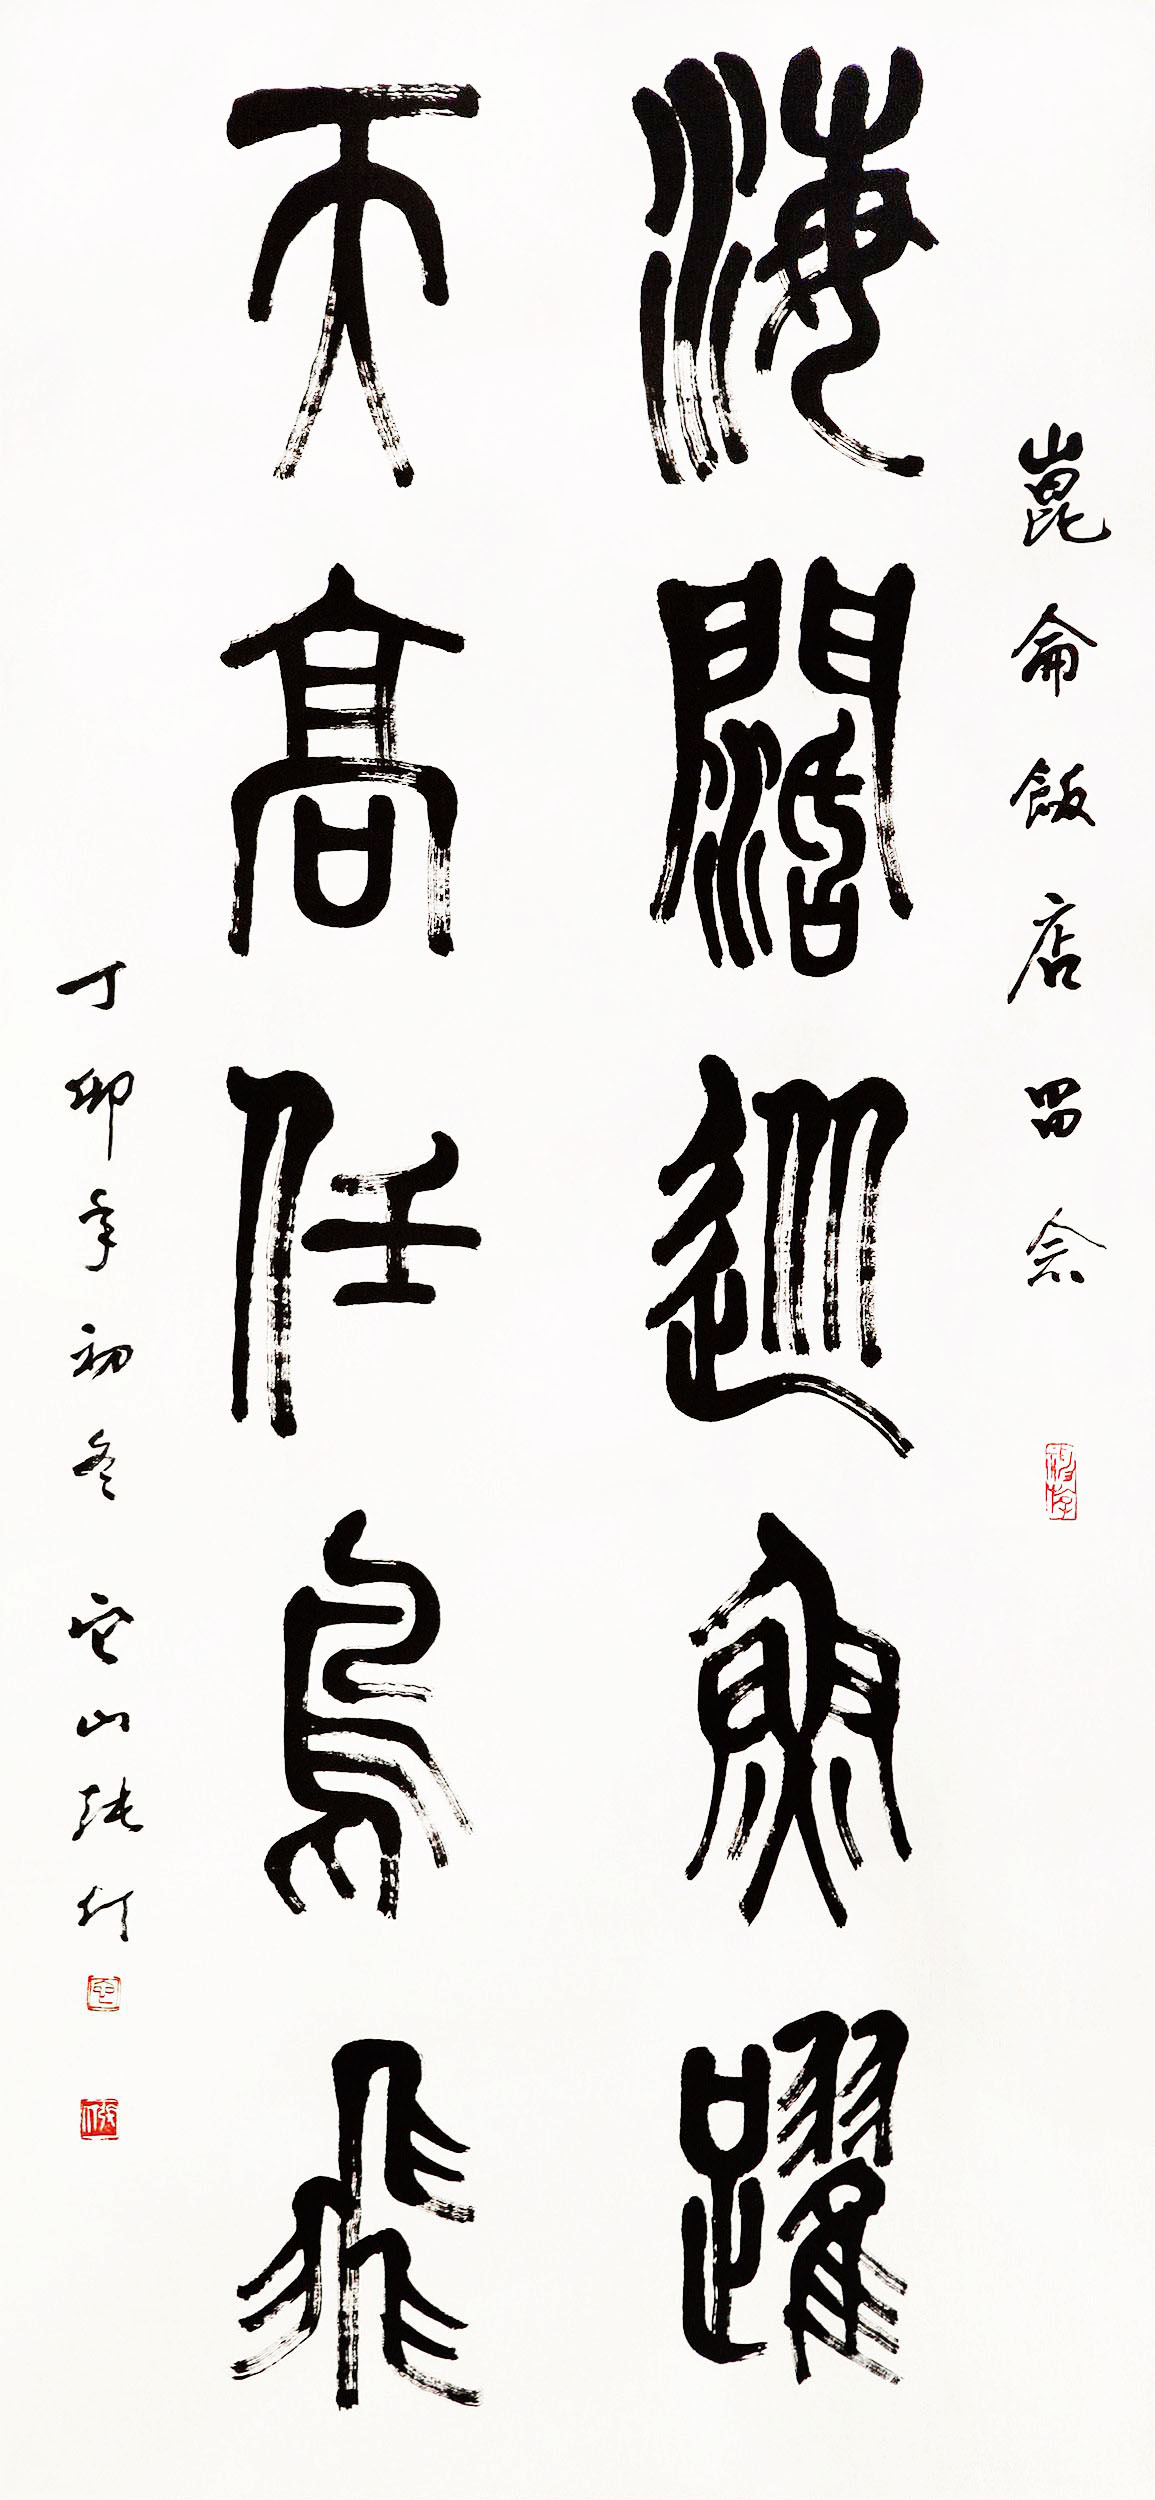 崑侖飯店留念
海闊從魚躍
天高任鳥飛
丁卯年初冬 它山張仃